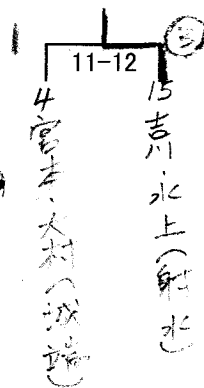 ③
11-12
15 吉川 水上（射水）
4 宮本・大村（城端）